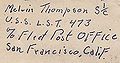 Melvin Thompson S 1/c
U.S.S. L.S.T. 473
c/o Fleet Post Office
San Francisco, Calif.